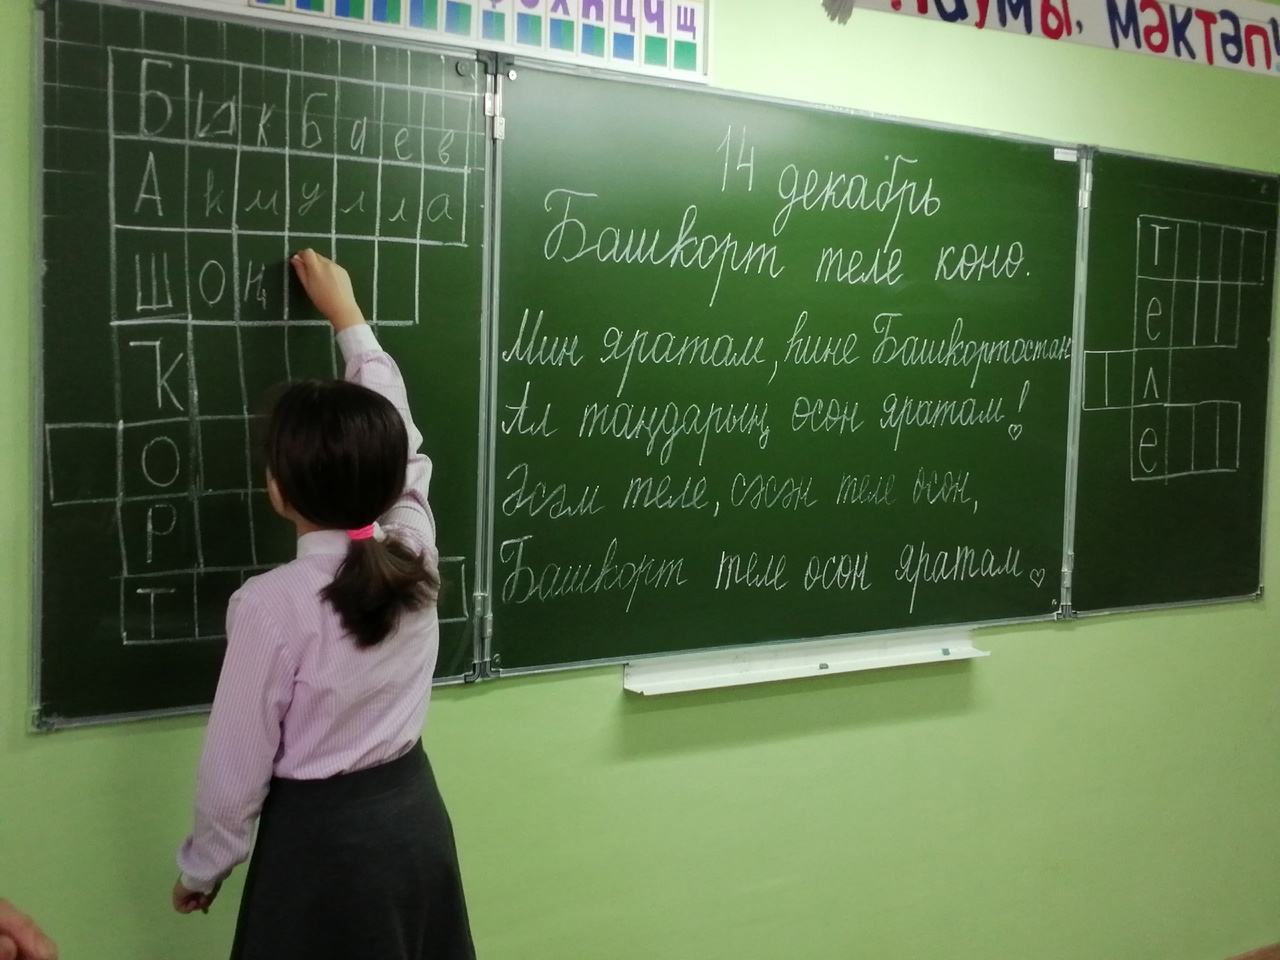 ц ч щ
һаумы, мәктәп!
Бикбаев
Акмулла
Шоң
К
О
Р
Т
14 декабрь
Башҡорт теле көнө.
Мин яратам, һине Башҡортостан
Ал таңдарың өсөн яратам!
Әсәм теле, сәсән теле өсөн,
Башҡорт теле өсөн яратам
Т
е
л
е